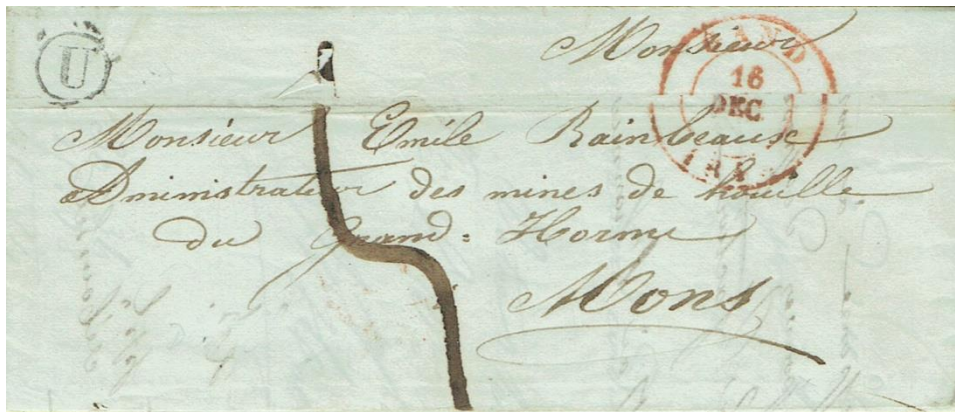 U
Monsieur
GAND
16
DEC.
Monsieur Emile Rainbeaux
administrateur des mines de houille
du Grand=Hornu
Mons